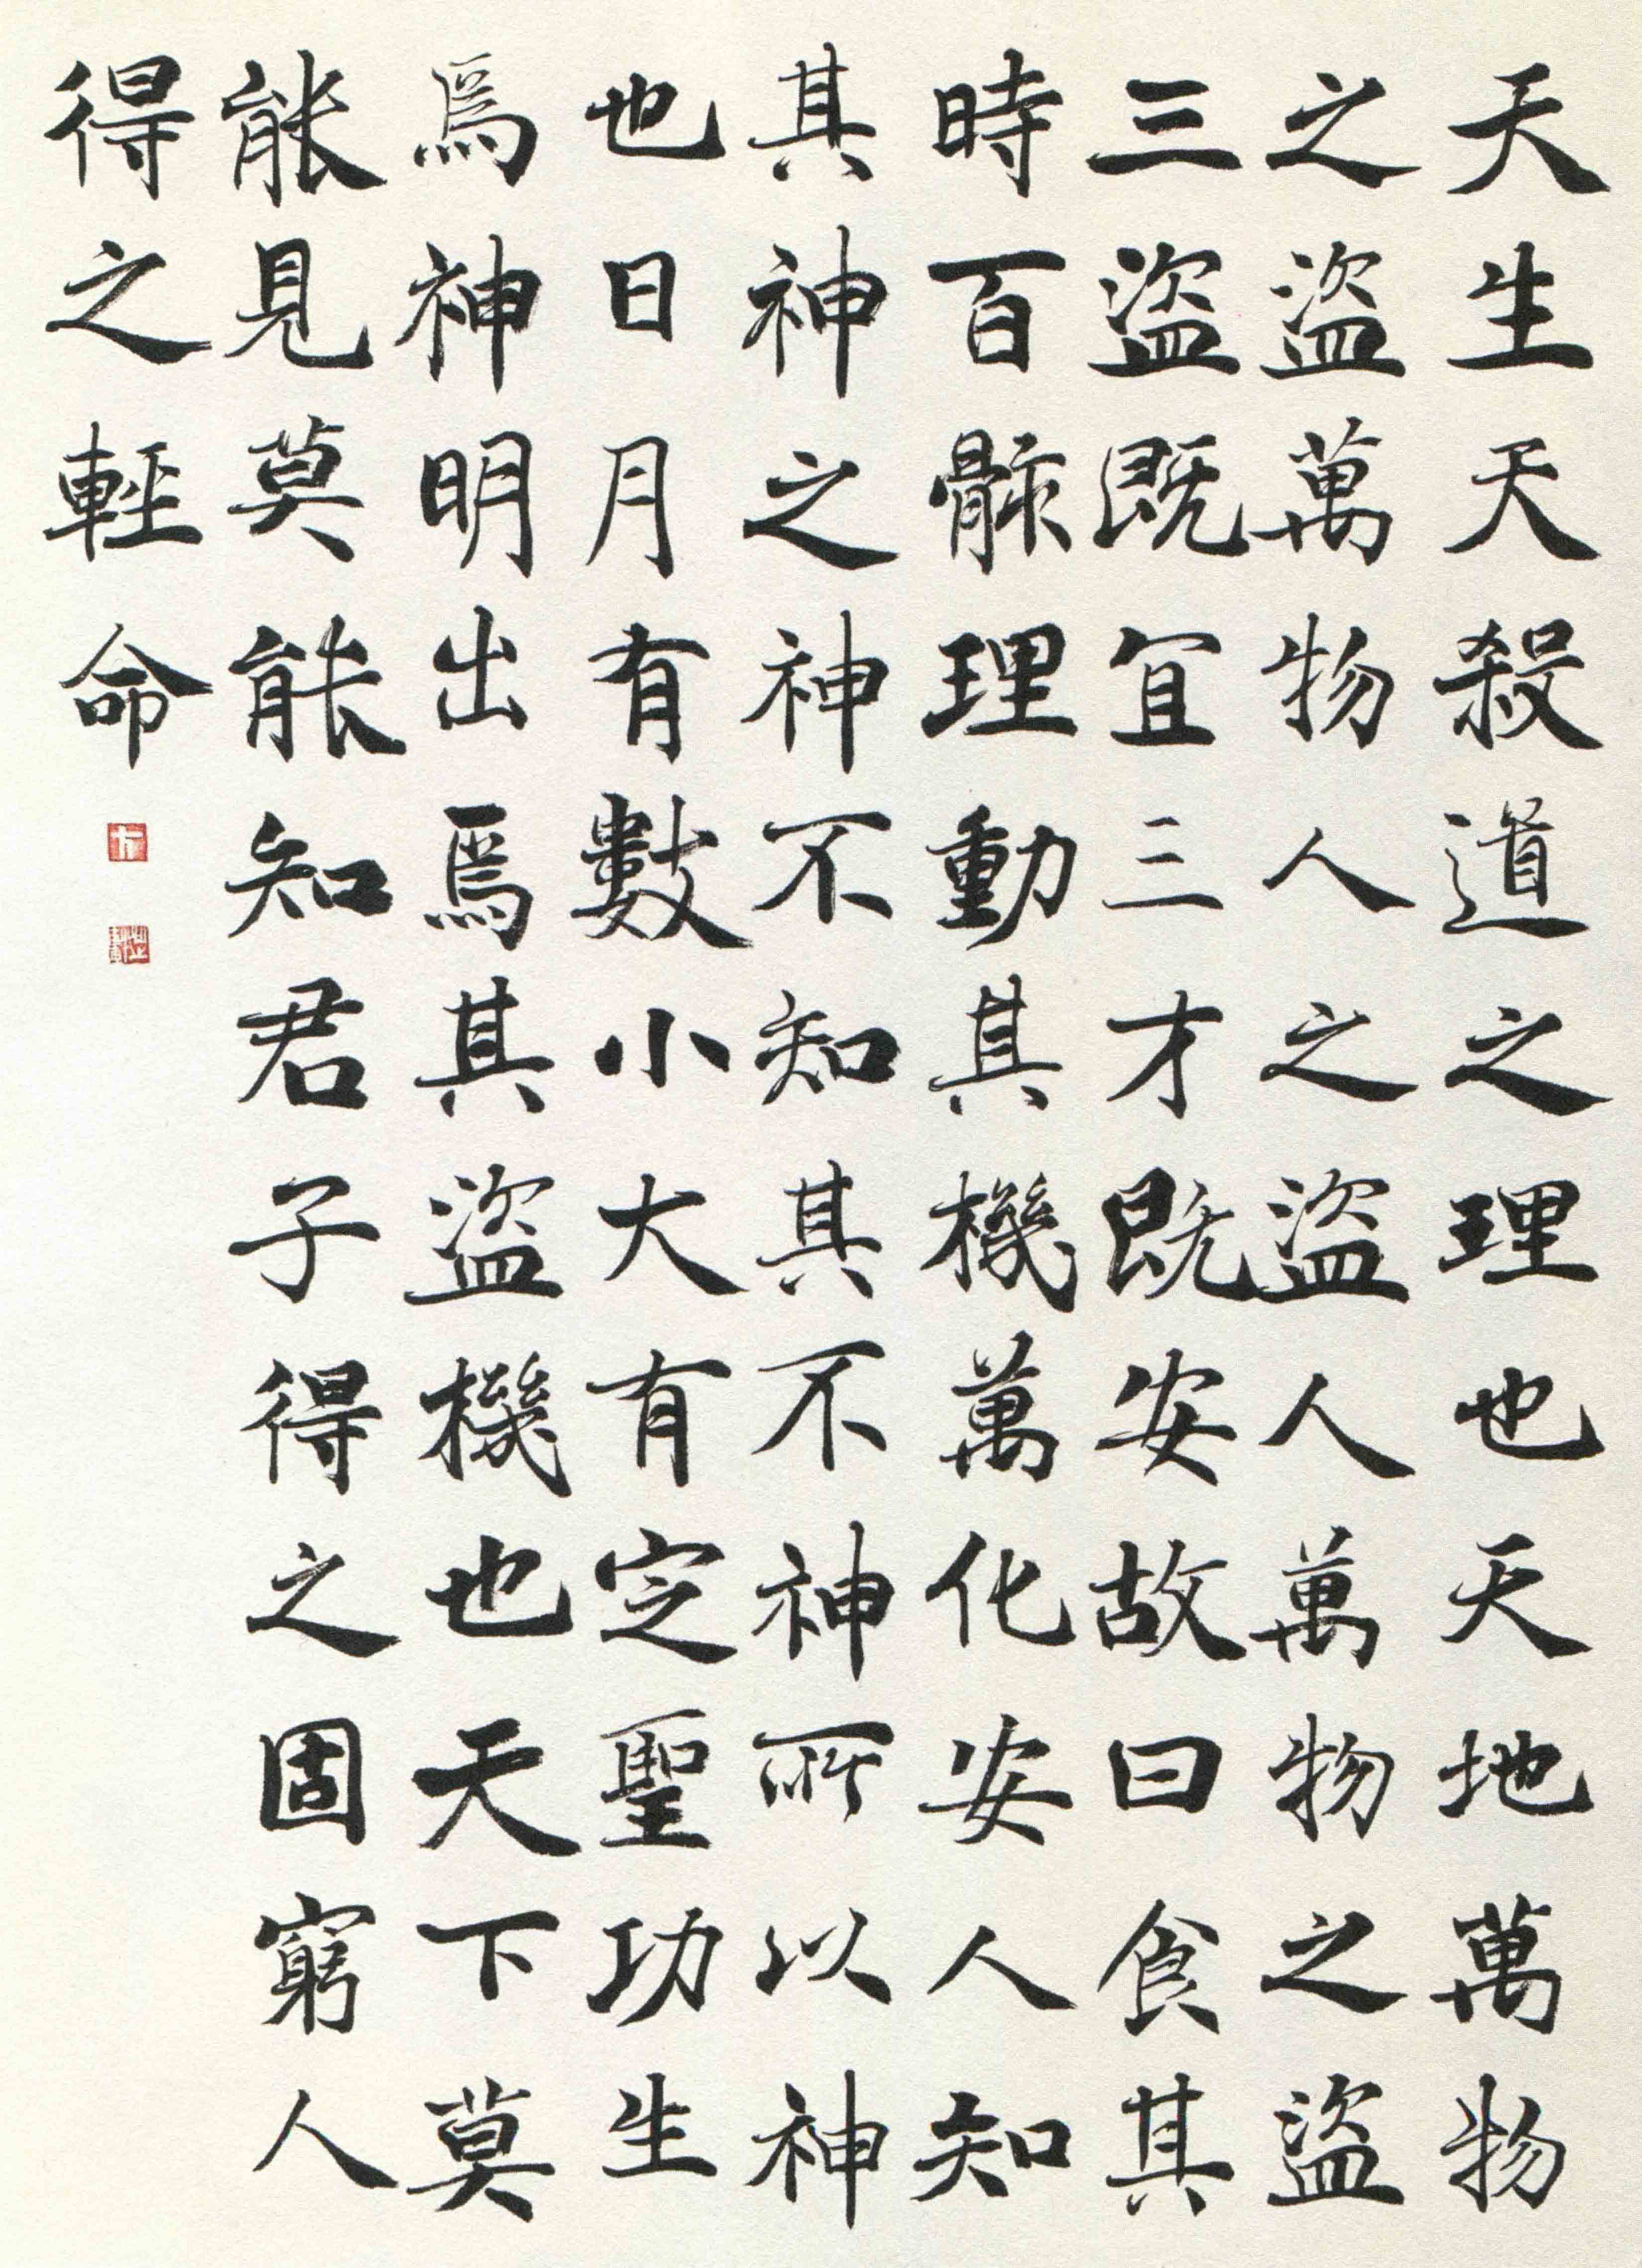 天生天殺道之理也天地萬物
之盜萬物人之盜人萬物之盜
三盜既宜三才既安故曰食其
時百骸理動其機萬化安人知
其神之神不知其不神所以神
也日月有數小大有定聖功生
焉神明出焉其盜機也天下莫
能見莫能知君子得之固窮人
得之輕命